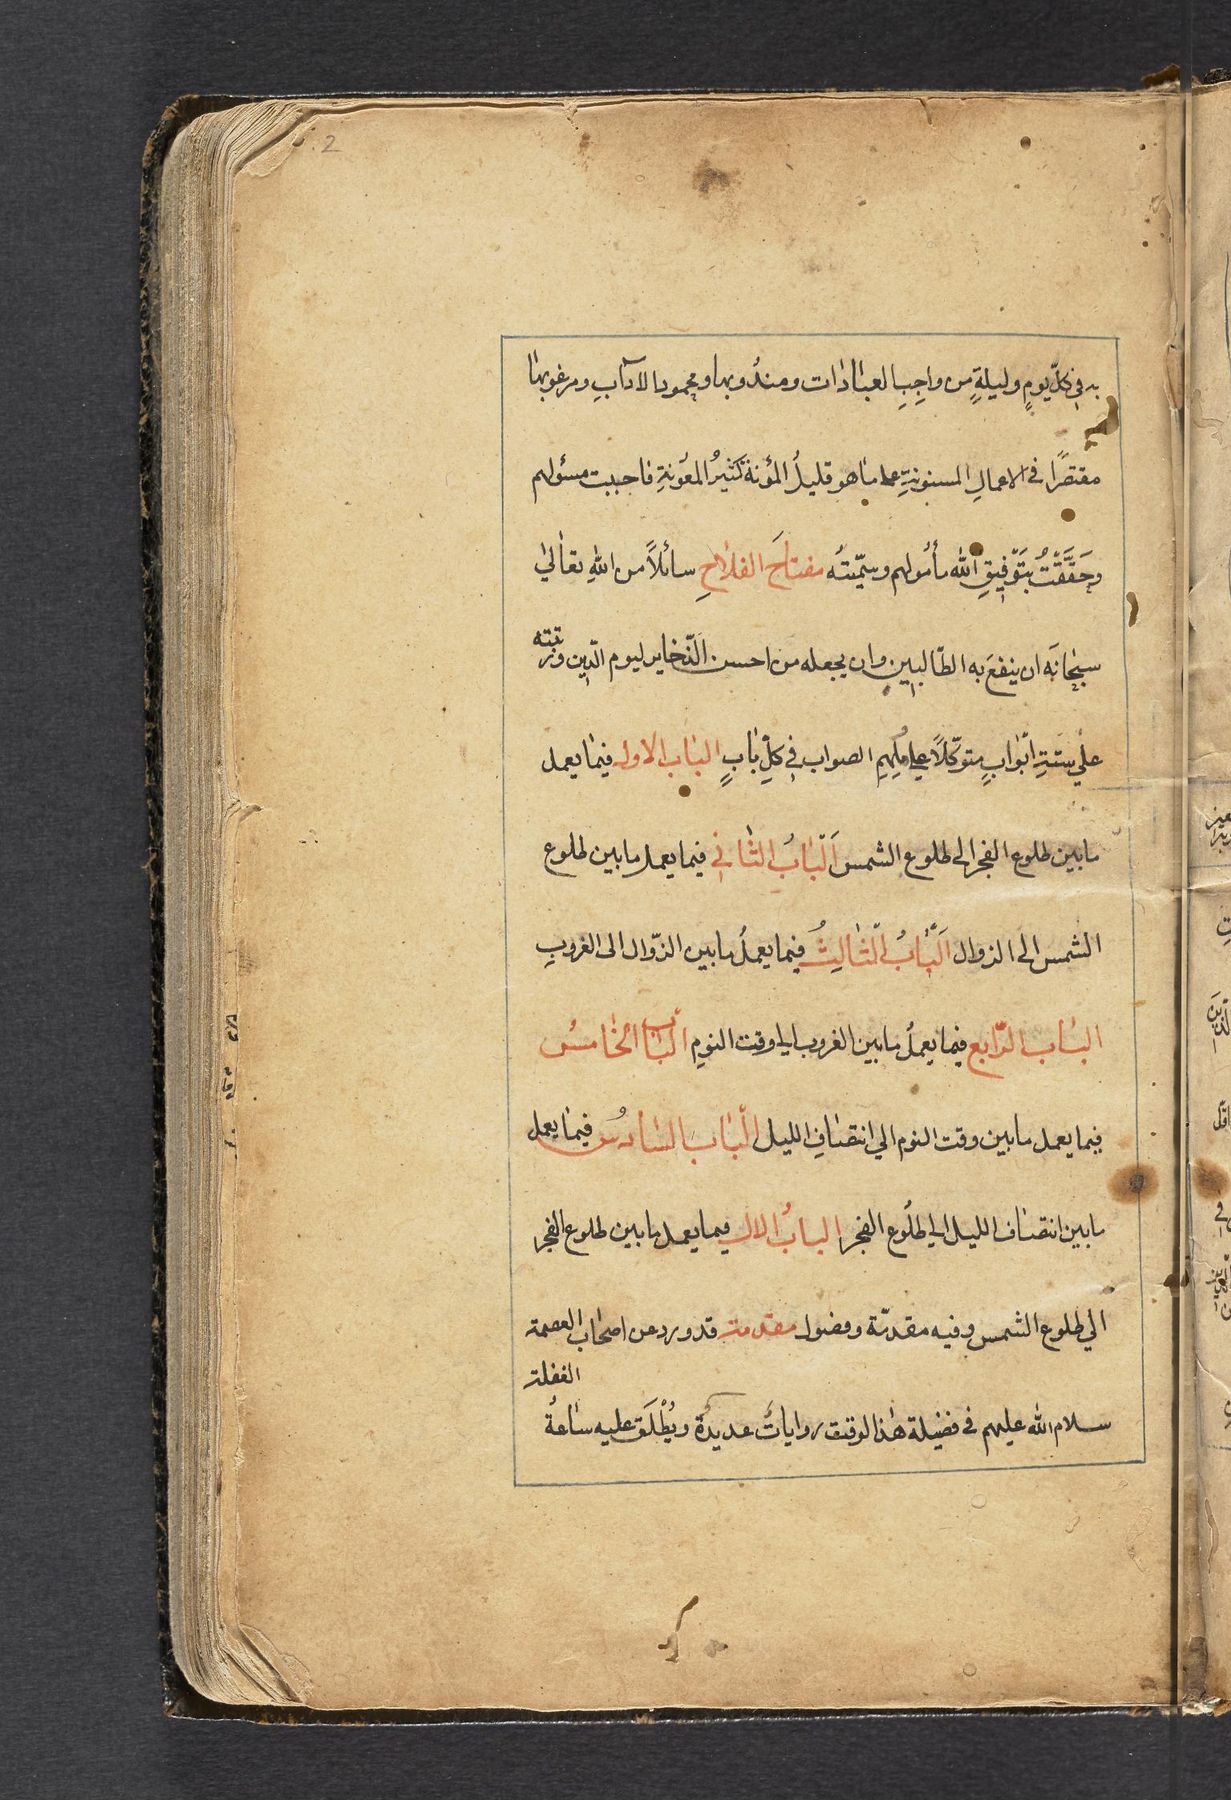 2
به في كلّ يومٍ وليلةٍ من واجِبِ العبٰادٰات ومندُوبها ومحمود الآدٰابِ ومرغوبهٰا
مقتصرًا في الاعمالِ المسنونةِ على مٰا هو قليلُ المؤنة كثيرُ المعوٗنةِ فاجبت مسئولهم
وحَقَّقْتُ بتَوْفيقِ الله مأمُولهم وسمّيتُه مفتاحَ الفلاحِ سائلاً من اللهِ تعٰالىٰ
سبحٰانَه ان ينفعَ به الطّالبين وان يجعله من احسن الذّخاير ليوم الدّين ورتبته
علىٰ ستّةِ ابْوٰابٍ متوكّلاً علىٰ مُلهِمِ الصواب في كلّ بٰابٍ البٰاب الاول فيمٰا يعمل
ما بين طلوع الفجر الى طلوع الشمس اَلبٰابُ الثّاني فيما يعمل ما بين طلوع
الشمس الى الزوال اَلبٰابُ الثّالِثُ فيما يعملُ ما بين الزّوال الى الغروبِ
البٰاب الرّابع فيما يعملُ ما بين الغروب الى وقت النوم البٰاب الخٰامسُ
فيما يعمل ما بين وقت النوم الى انتصٰافِ الليل البٰاب السّادسُ فيمٰا يعمل
ما بين انتصٰاف الليل الى طلُوع الفجر البابُ الاول فيما يعمل ما بين طلوع الفجر
الى طلوع الشمس وفيه مقدمّة وفصول مقدمة قد ورد عن اصحٰاب العصمة
سلام الله عليهم في فضيلة هٰذا الوقت روايٰاتٌ عديدةٌ ويُطْلَق عليه سٰاعةُ
الغفلة